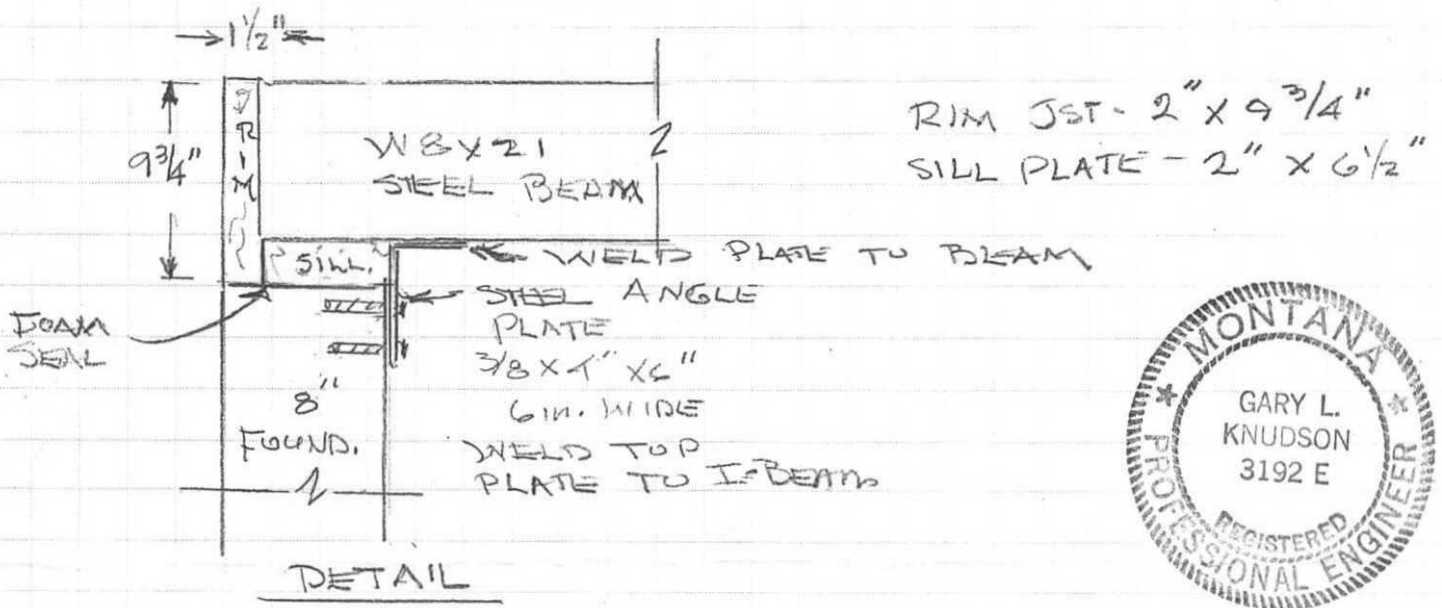 1 1/2"
9 3/4"
RIM
W8X21
STEEL BEAM
RIM JST- 2" X 9 3/4"
SILL PLATE - 2" X 6 1/2"
SILL
WELD PLATE TO BEAM
STEEL ANGLE
PLATE
3/8 X 4" X 6"
6 IN. WIDE
WELD TOP
PLATE TO I-BEAM
FOAM
SEAL
8"
FOUND.
DETAIL
MONTANA
GARY L.
KNUDSON
3192 E
REGISTERED
PROFESSIONAL ENGINEER